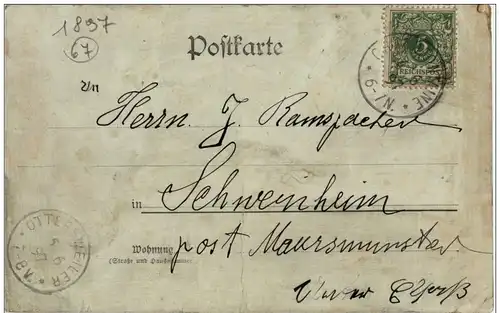 1897
67
Postkarte
5
REICHSPOST
* 6-7N *
An
Herrn J. Ramspacher
in Schweinheim
Wohnung
post Maursmunster
(Straße und Hausnummer)
Unter Elsaß
OTTERSWEILER